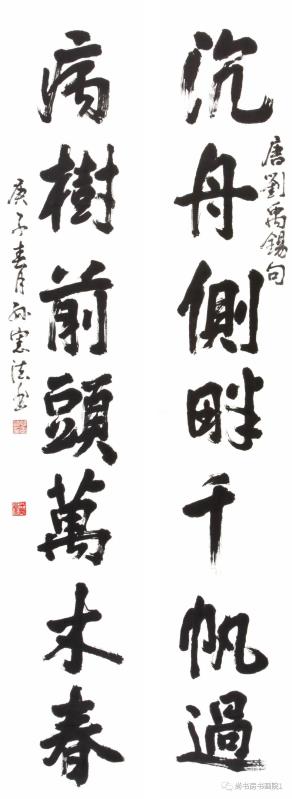 沉舟側畔千帆過
唐劉禹錫句
病樹前頭萬木春
庚子春月孫憲法書
尚书房书画院1